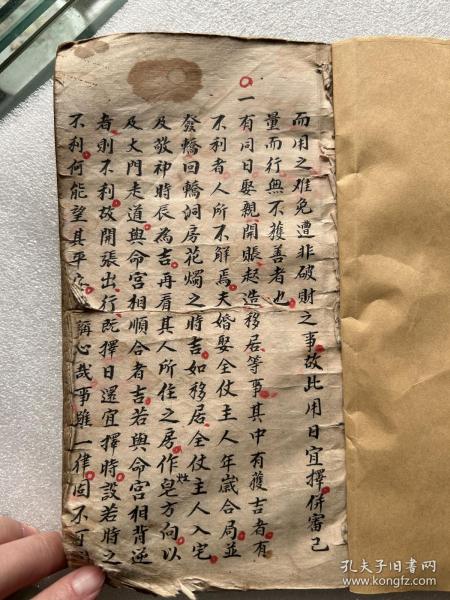 而用之难免遭非破財之事故此用日宜擇併審己
量而行無不獲善者也
一有同日娶親開賬起造移居等事其中有獲吉者有
不利者人所不解焉夫婚娶全仗主人年嵗合局並
發轎回轎洞房花燭之時吉如移居全仗主人入宅
及敬神時辰為吉再看其人所住之房作皂灶方向以
及大门走道與命宫相順合者吉若與命宫相背逆
者則不利故開張出行既擇日還宜擇時設若時之
不利何能望其平 稱心哉事雖一律固不可
孔夫子旧书网
book.kongfz.com